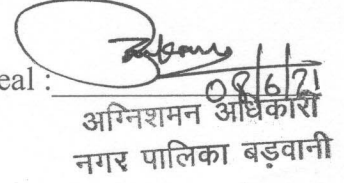 eal :
08/6/21
अग्निशमन अधिकारी
नगर पालिका बड़वानी